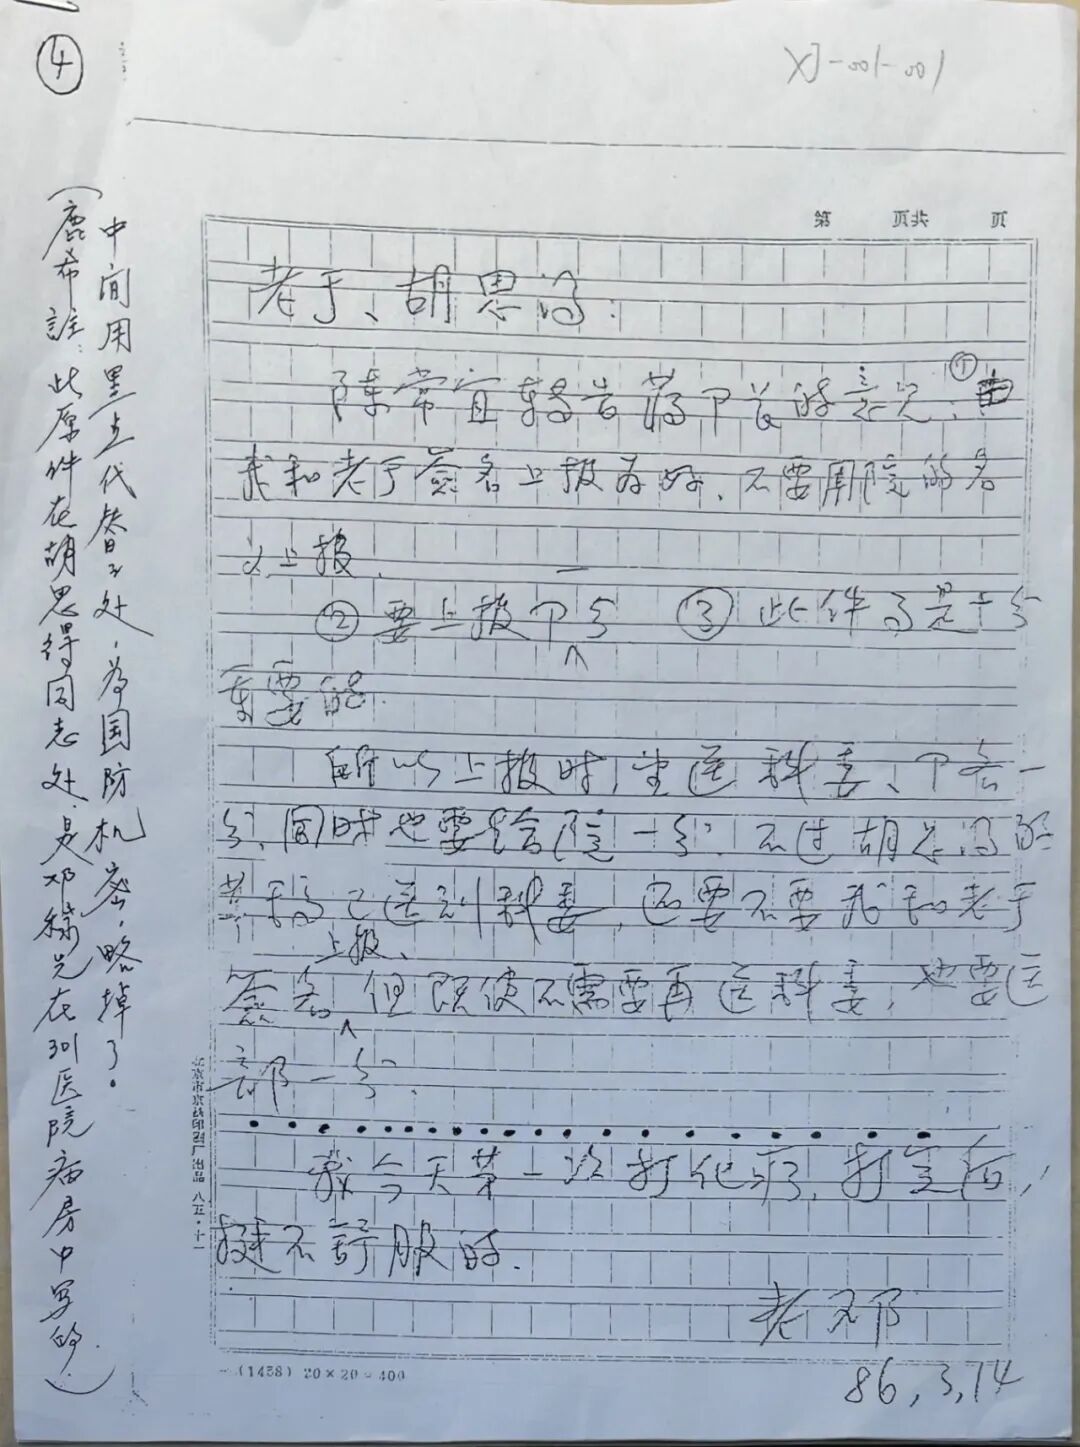 ④
XJ-001-001
第 页共 页
老于、胡思得:
陈常宜转告蒋 的意见:①由
我和老于签名上报为好、不要用院的名
义上报.
②要上报 分 ③此件 是十分
重要的.
所以上报时,坐送科委、 各一
分,同时也要给院一分.不过胡思得的
草稿已送到科委,还要不要我和老于
签名上报、但既使不需要再送科委,也要送
部一分.
我今天第一次打化疗,打完后,
挺不舒服的.
老邓
86,3,14
(1458) 20×20=400
北京市京 印刷厂出品 八五·十一
(鹿希註:此原件在胡思得同志处.是邓稼先在301医院病房中写的.
中间用黑点代替之处,为国防机密,略掉了.)